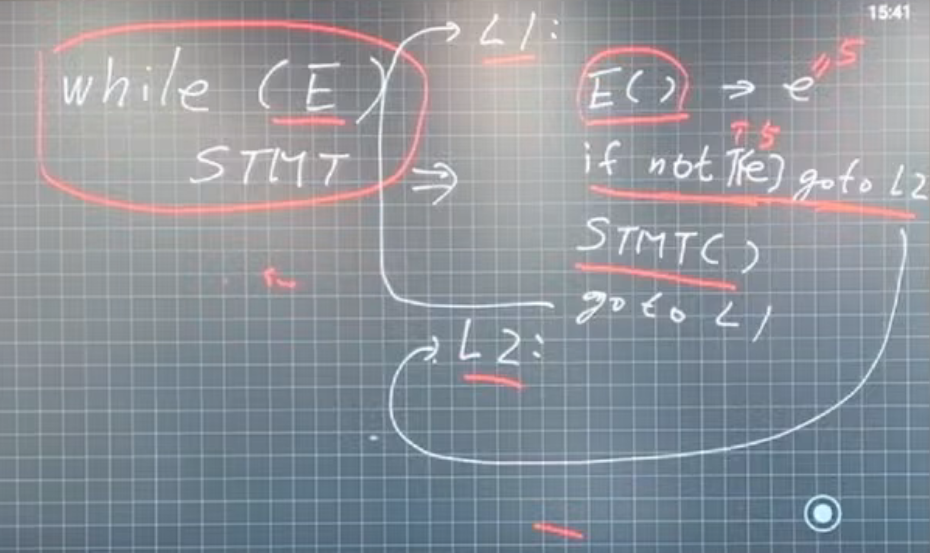 15:41
while (E)
STMT
⇒
L1:
E() → e "5
T5
if not T[e] goto L2
STMT()
goto L1
L2: